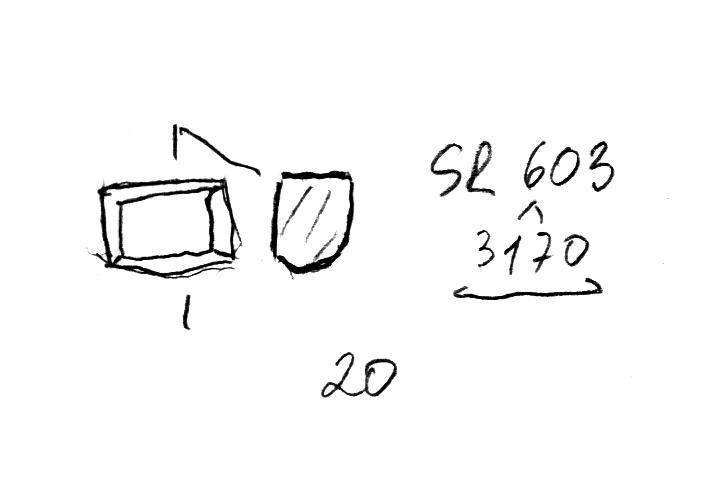 SR 603
3170
20